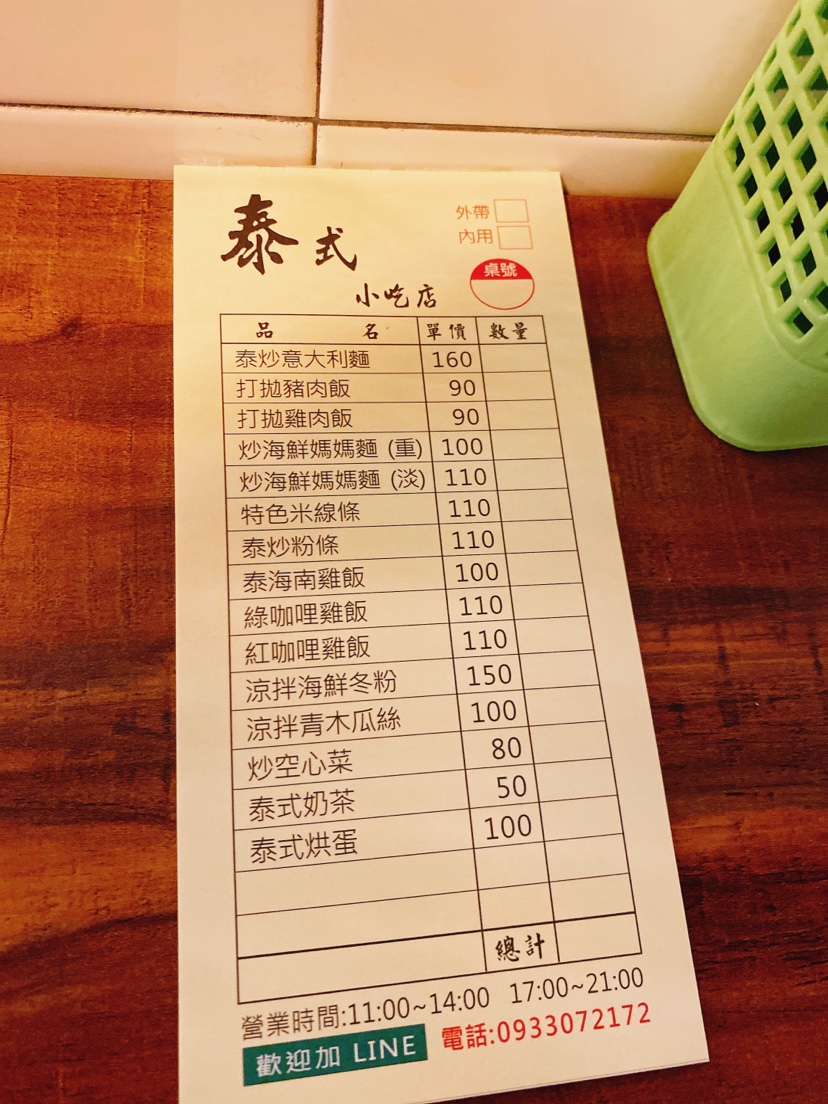 泰式
小吃店
外帶
內用
桌號
品名 單價 數量
泰炒意大利麵 160
打拋豬肉飯 90
打拋雞肉飯 90
炒海鮮媽媽麵 (重) 100
炒海鮮媽媽麵 (淡) 110
特色米線條 110
泰炒粉條 110
泰海南雞飯 100
綠咖哩雞飯 110
紅咖哩雞飯 110
涼拌海鮮冬粉 150
涼拌青木瓜絲 100
炒空心菜 80
泰式奶茶 50
泰式烘蛋 100
總計
營業時間:11:00~14:00 17:00~21:00
歡迎加 LINE 電話:0933072172